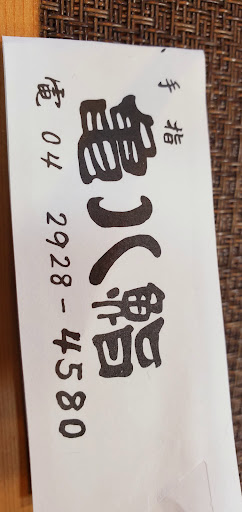 手指
亀八鮨
電 04 2928-4580